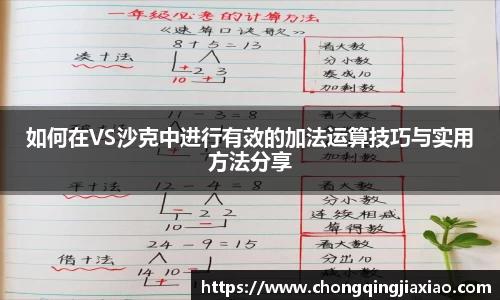 一年级必考的计算方法
《速算口诀歌》
8+5=13
看大数
分小数
凑成10
加剩数
凑十法
2 3
10
11-3=8
看大数
如何在VS沙克中进行有效的加法运算技巧与实用
方法分享
加剩数
平十法
12-4=8
看大数
分小数
连续相减
算得数
2 2
10
24-9=15
看大数
分出10
减小数
借十法
14 10
https://www.chongqingjiaxiao.com